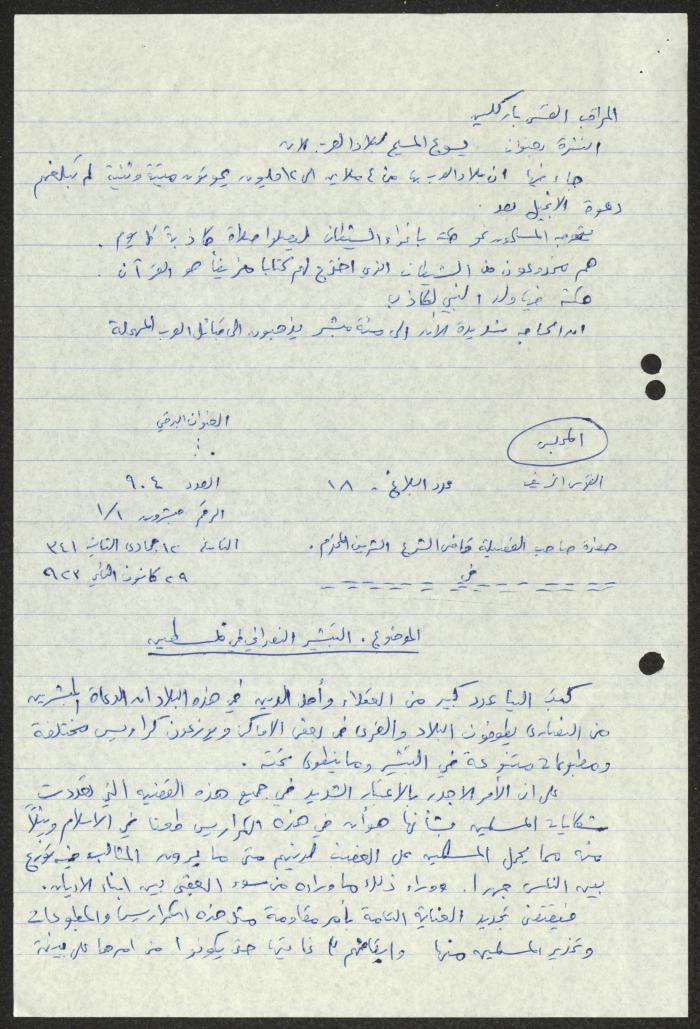 المراقب القس باركلس
النشرة بعنوان يسوع المسيح لبلاد العرب الان
جاء فيها ان بلاد العرب بها من ٤ ملاين الى ١٢ مليون يموتون ميتة وثنية لم تبلغهم
دعوة الانجيل بعد.
يتوجه المسلمون نحو مكة باغراء الشيطان ليصلوا صلاة كاذبة كل يوم.
هم مخدوعون من الشيطان الذي اخترع لهم كتابا مزيفا هو القرآن
مكة فيها ولد النبي الكاذب
ان الحاجة شديدة الآن الى مئة مبشر يذهبون الى قبائل العرب المهملة
العنوان البرقي
المجلس
القدس الشريف عدد البلاغ - ١٨ العدد ٩٠٤
الرقم عشرون ١/١
حضرة صاحب الفضيلة قاضي الشرع الشريف المحترم. التاريخ ١٢ جمادى الثانية ٣٤١
في ٢٩ كانون الثاني ٩٢٣
الموضوع. التبشير النصراني في فلسطين
كتب الينا عدد كبير من العقلاء وأهل الدين في هذه البلاد ان الدعاة المبشرين
من النصارى يطوفون البلاد والقرى في بعض الاماكن ويوزعون كراريس مختلفة
ومطبوعات متنوعة في التبشير وما ينطوي تحته.
على ان الأمر الاجدر بالاعتبار الشديد في جميع هذه القضية التي تعددت
شكايات المسلمين بشأنها هو أن في هذه الكراريس طعنا في الاسلام ونيلاً
منه مما يحمل المسلمين على الغضب لدينهم متى ما يرون المثالب فيه توزع
بين الناس جهرا. ووراء ذلك ما وراءه من سوء العقبى بين ابناء الاديان.
فيقتضي تجديد العناية التامة بأمر مقاومة مثل هذه الكراريس والمطبوعات
وتحذير المسلمين منها وايقافهم على غايتها حتى يكونوا من امرها على بينة